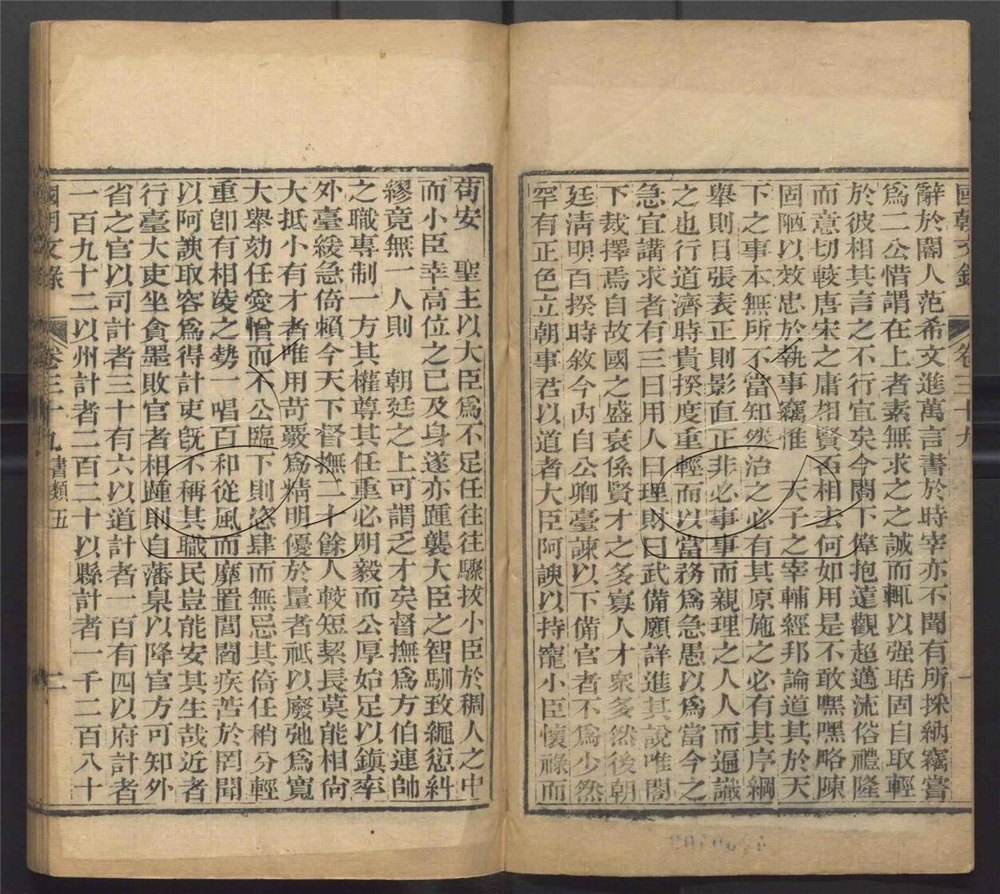 國朝文錄 卷三十九 一
辭於閽人范希文進萬言書於時宰亦不聞有所採納竊嘗
爲二公惜謂在上者素無求之之誠而輒以强聒固自取輕
於彼相其言之不行宜矣今閣下偉抱遠觀超邁流俗禮隆
而意切較唐宋之庸相賢否相去何如用是不敢嘿嘿略陳
固陋以效忠於執事竊惟 天子之宰輔經邦論道其於天
下之事本無所不當知然治之必有其原施之必有其序綱
舉則目張表正則影直正非必事事而親理之人人而遍識
之也行道濟時貴揆度重輕而以當務爲急愚以爲當今之
急宜講求者有三曰用人曰理財曰武備願詳進其說唯閣
下裁擇焉自故國之盛衰係賢才之多寡人才衆多然後朝
廷淸明百揆時敘今內自公卿臺諫以下備官者不爲少然
罕有正色立朝事君以道者大臣阿諛以持寵小臣懷祿而
苟安 聖主以大臣爲不足任往往驟拔小臣於稠人之中
而小臣幸高位之已及身遂亦踵襲大臣之智馴致繩愆糾
繆竟無一人則 朝廷之上可謂乏才矣督撫爲方伯連帥
之職專制一方其權尊其任重必明毅而公厚始足以鎭率
外臺緩急倚賴今天下督撫二十餘人較短絜長莫能相尙
大抵小有才者唯用苛嚴爲精明優於量者祇以廢弛爲寬
大舉劾任愛憎而不公臨下則恣肆而無忌其倚任稍分輕
重卽有相陵之勢一唱百和從風而靡置閭閻疾苦於罔聞
以阿諛取容爲得計吏旣不稱其職民豈能安其生哉近者
行臺大吏坐貪墨敗官者相踵則自藩臬以降官方可知外
省之官以司計者三十有六以道計者一百有四以府計者
一百九十二以州計者二百二十以縣計者一千二百八十
國朝文錄 卷三十九書類五 二